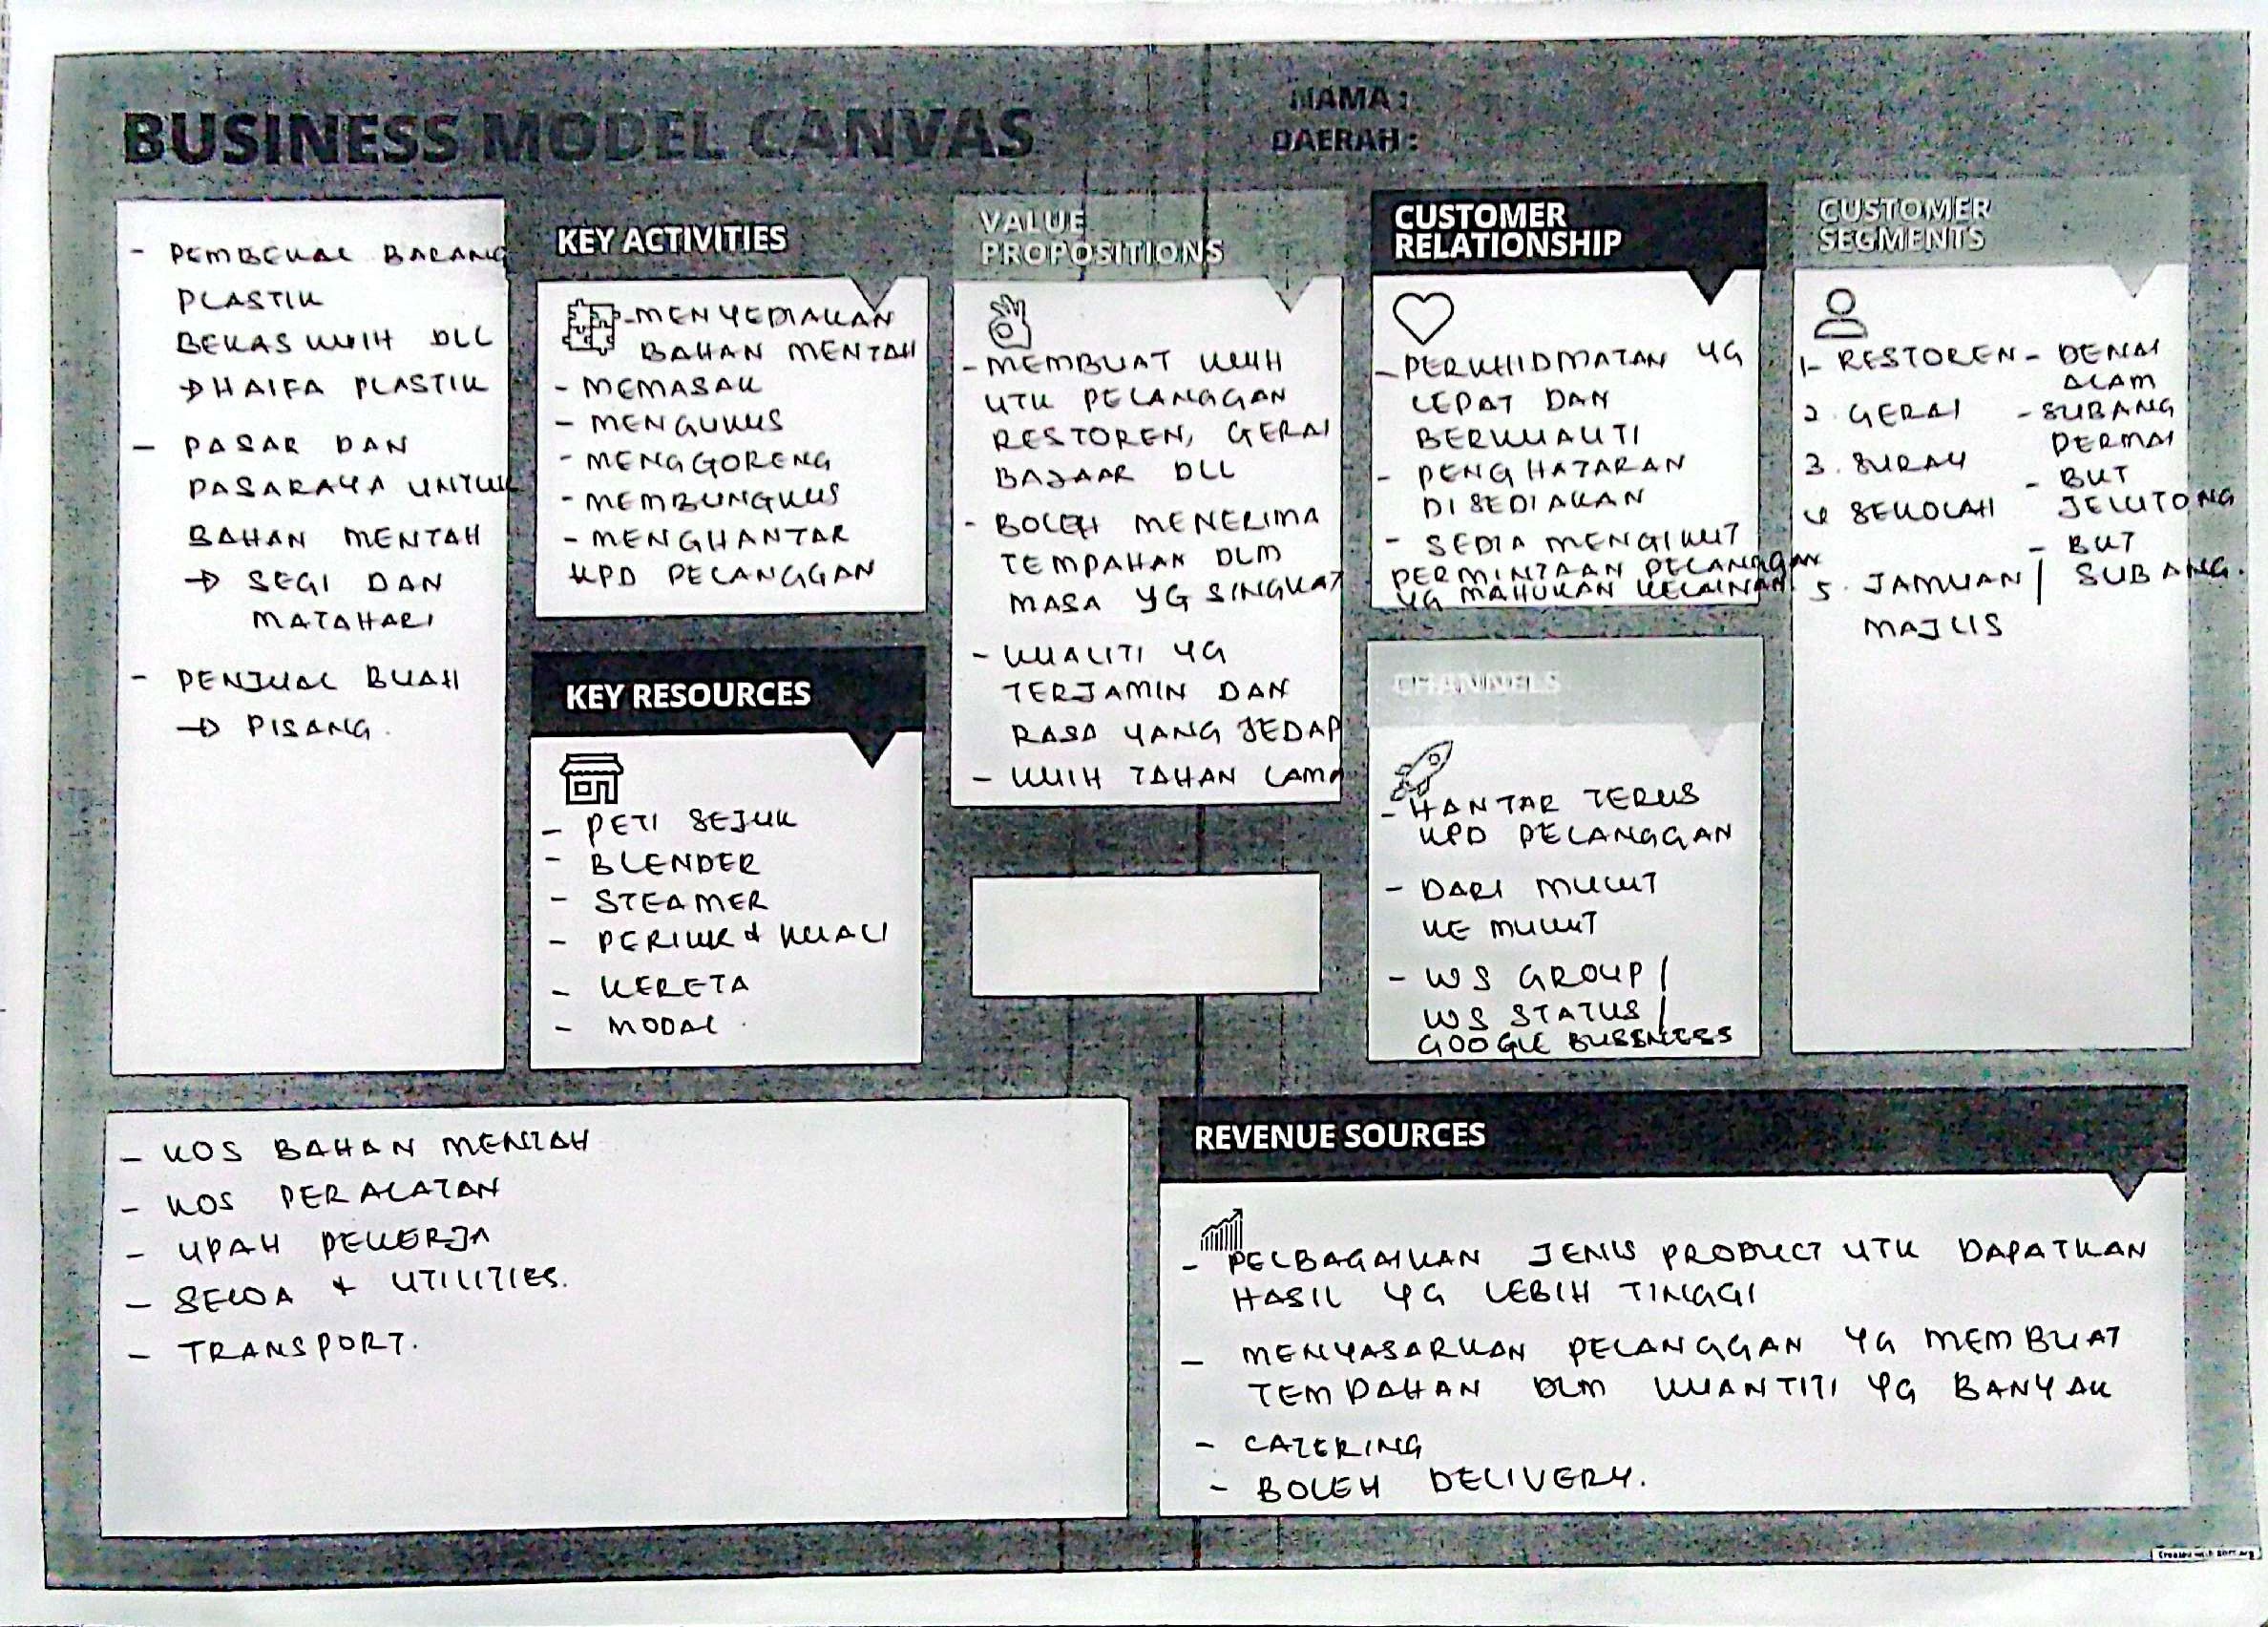 BUSINESS MODEL CANVAS
NAMA :
DAERAH :
- PEMBEKAL BARANG
PLASTIK
BEKAS KUIH DLL
→ HAIFA PLASTIK
- PASAR DAN
PASARAYA UNTUK
BAHAN MENTAH
→ SEGI DAN
MATAHARI
- PENJUAL BUAH
→ PISANG.
KEY ACTIVITIES
- MENYEDIAKAN
BAHAN MENTAH
- MEMASAK
- MENGUKUS
- MENGGORENG
- MEMBUNGKUS
- MENGHANTAR
KPD PELANGGAN
KEY RESOURCES
- PETI SEJUK
- BLENDER
- STEAMER
- PERIUK & KUALI
- KERETA
- MODAL.
VALUE
PROPOSITIONS
- MEMBUAT KUIH
UTK PELANGGAN
RESTOREN, GERAI
BAJAAR DLL
- BOLEH MENERIMA
TEMPAHAN DLM
MASA YG SINGKAT
- KUALITI YG
TERJAMIN DAN
RASA YANG SEDAP
- KUIH TAHAN LAMA
CUSTOMER
RELATIONSHIP
- PERKHIDMATAN YG
CEPAT DAN
BERKUALITI
- PENGHATARAN
DISEDIAKAN
- SEDIA MENGIKUT
PERMINTAAN PELANGGAN
YG MAHUKAN KELAINAN
CHANNELS
- HANTAR TERUS
KPD PELANGGAN
- DARI MULUT
KE MULUT
- WS GROUP /
WS STATUS /
GOOGLE BUSSNESS
CUSTOMER
SEGMENTS
1- RESTOREN - DENAI
ALAM
2. GERAI - SUBANG
PERMAI
3. SURAU
- BUT
4 SEKOLAH JELUTONG
- BUT
5. JAMUAN / SUBANG.
MAJLIS
- KOS BAHAN MENTAH
- KOS PERALATAN
- UPAH PEKERJA
- SEWA & UTILITIES.
- TRANSPORT.
REVENUE SOURCES
- PELBAGAIKAN JENIS PRODUCT UTK DAPATKAN
HASIL YG LEBIH TINGGI
- MENYASARKAN PELANGGAN YG MEMBUAT
TEMPAHAN DLM KUANTITI YG BANYAK
- CATERING
- BOLEH DELIVERY.